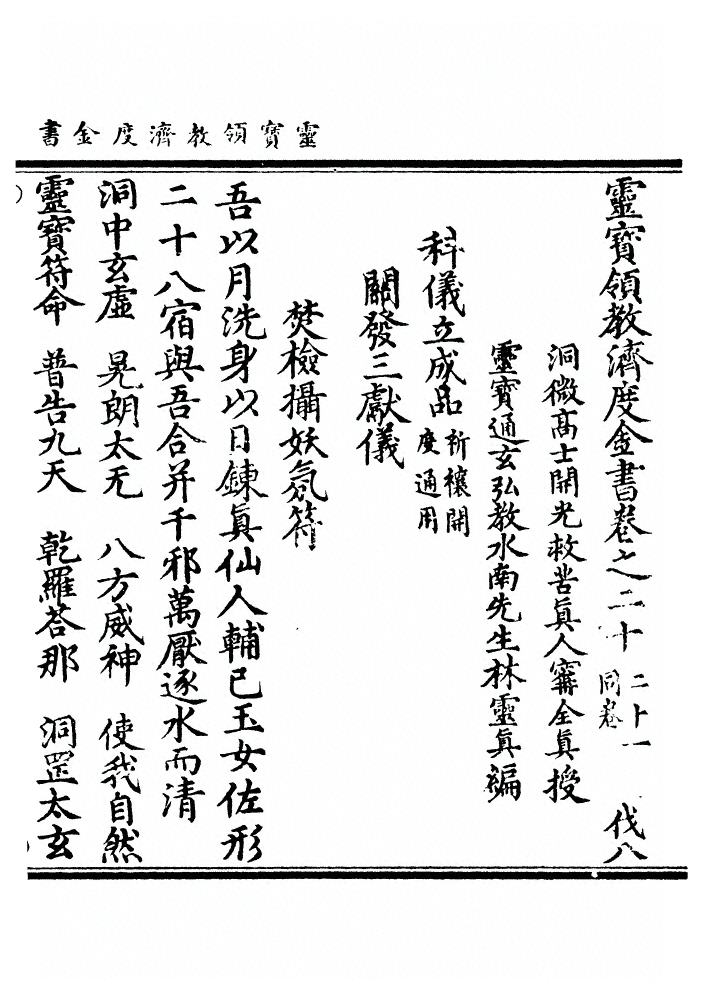 靈寶領教濟度金書
靈寶領教濟度金書卷之二十 二十一同卷 伐八
洞微高士開光救苦眞人甯全眞授
靈寶通玄弘教水南先生林靈眞編
科儀立成品 祈禳開度通用
關發三獻儀
焚檢攝妖氛符
吾以月洗身以日鍊眞仙人輔已玉女佐形
二十八宿與吾合并千邪萬厭逐水而清
洞中玄虛 晃朗太无 八方威神 使我自然
靈寶符命 普告九天 乾羅荅那 洞罡太玄